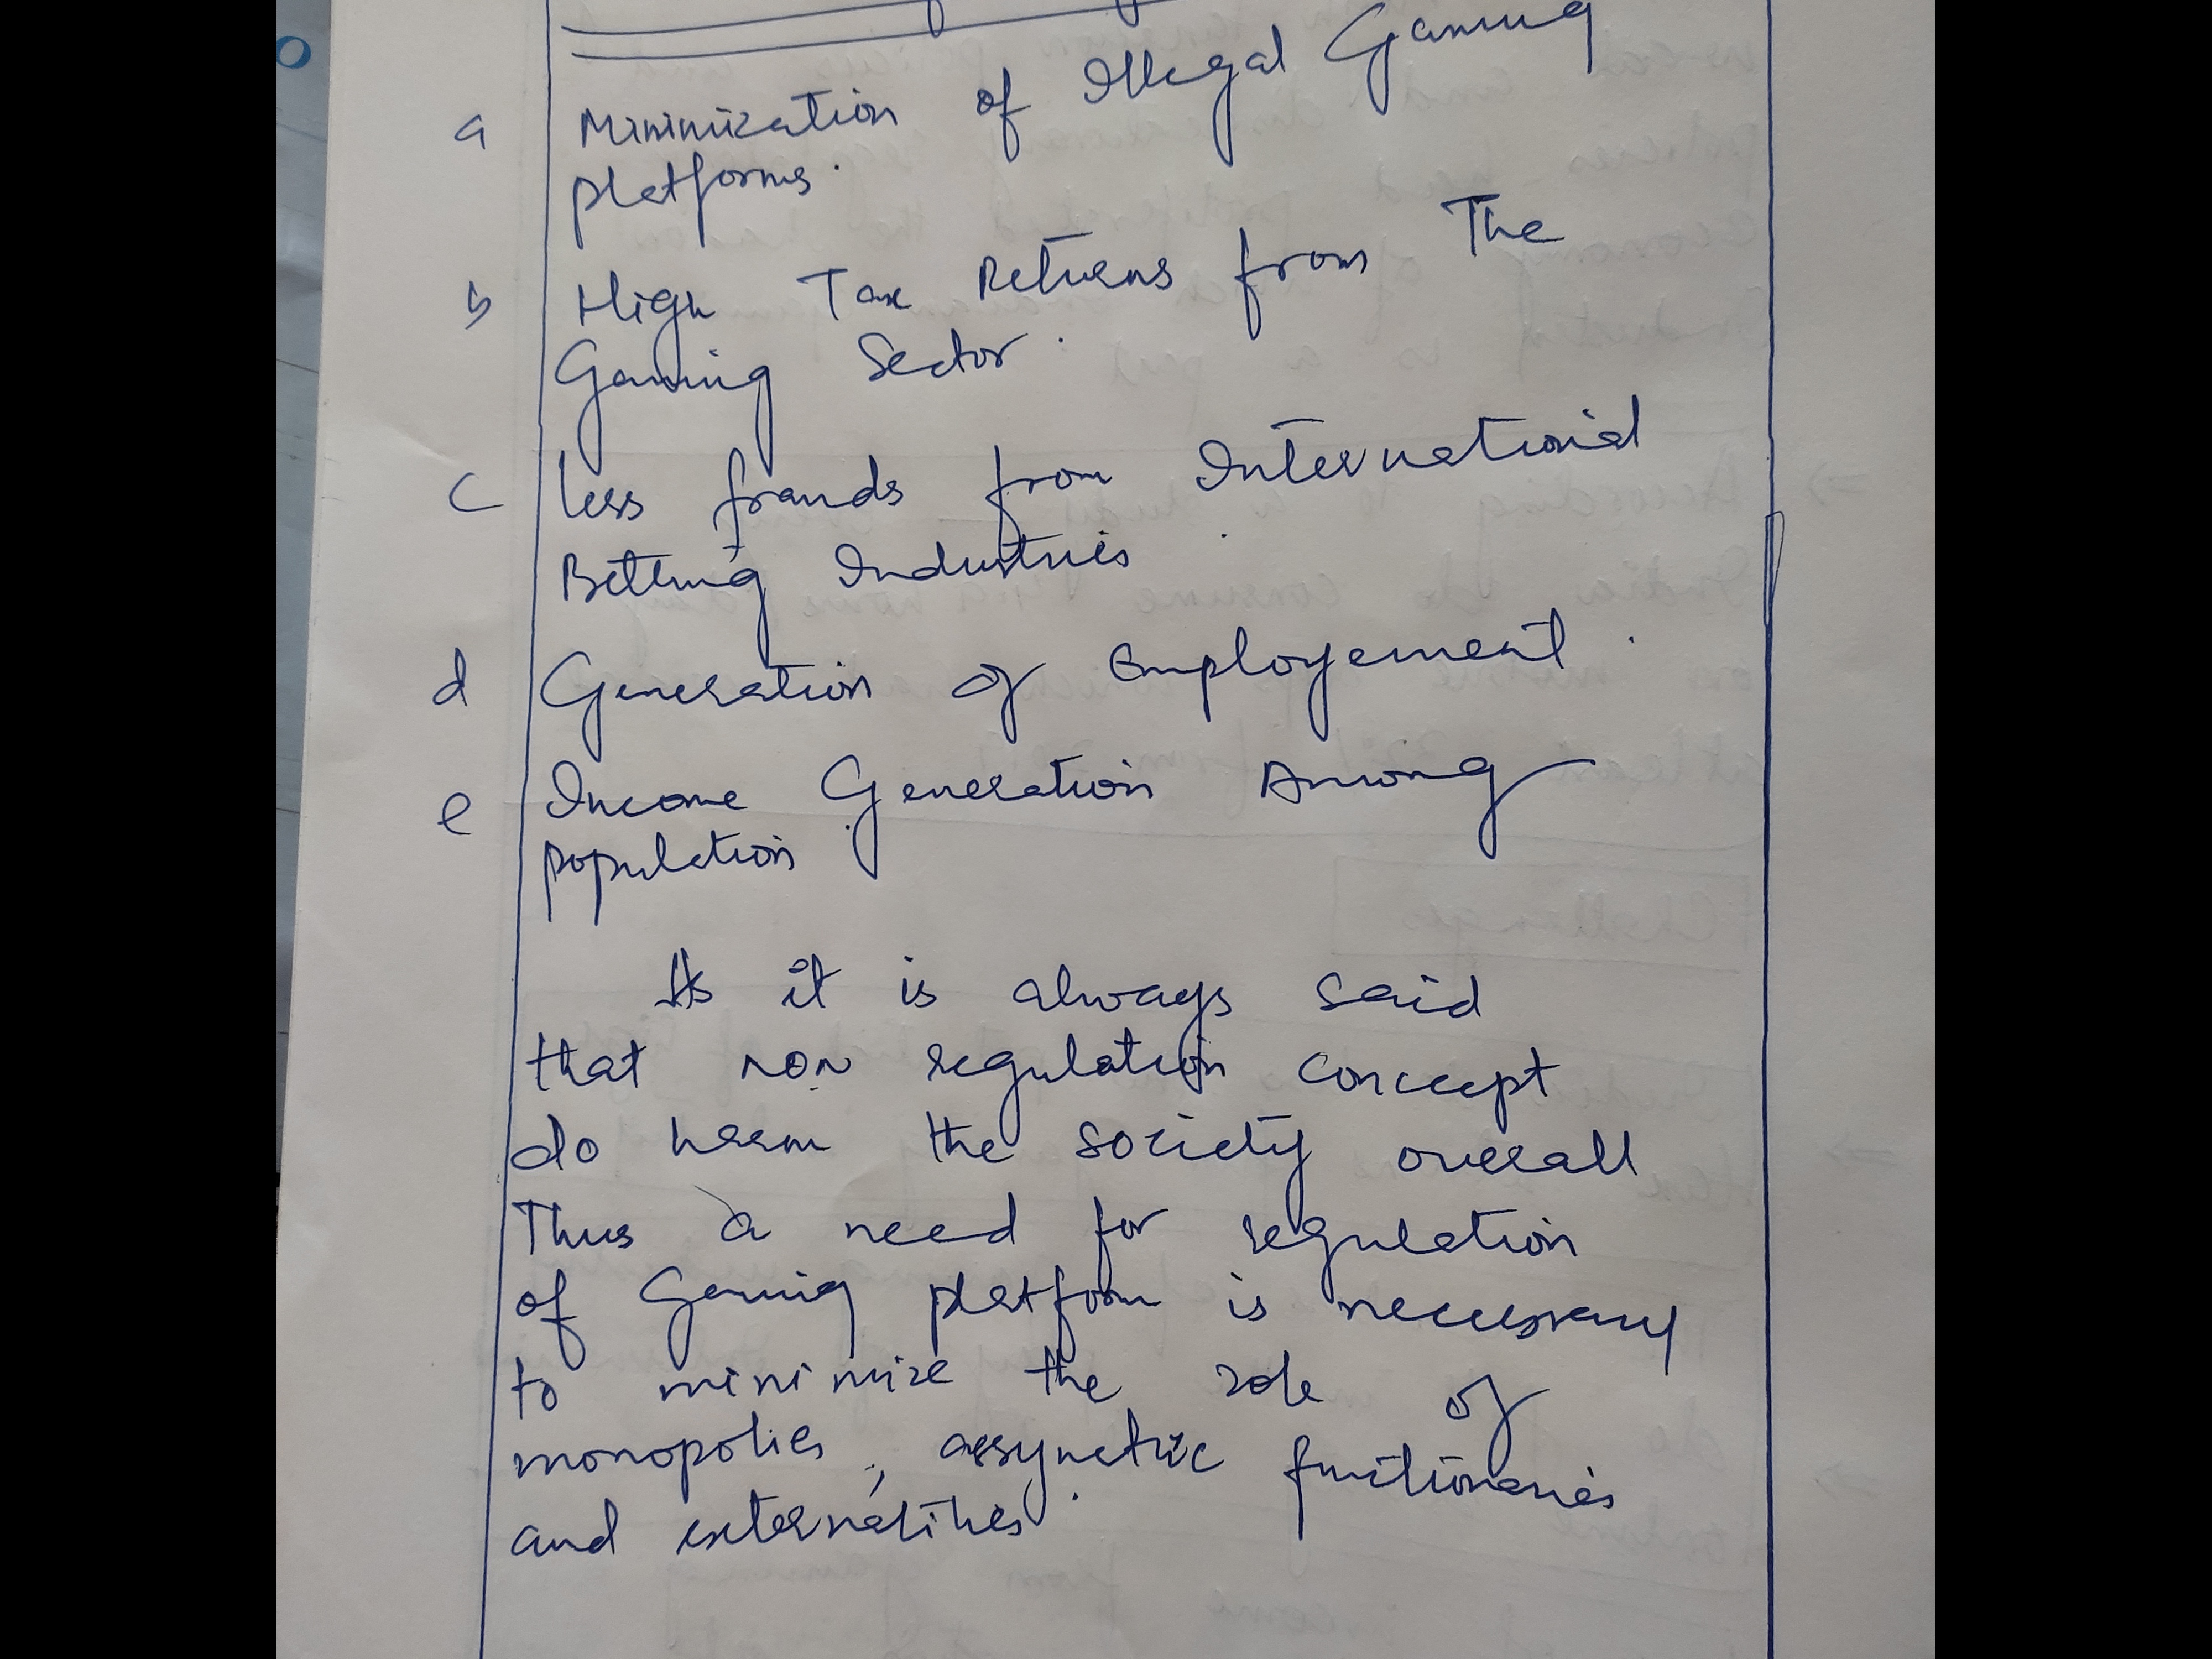 a Minimization of Illegal Gaming
platforms.
b High Tax Returns from The
Gaming Sector.
c less frauds from International
Betting Industries.
d Generation of Employement.
e Income Generation Among
population
As it is always said
that non regulation concept
do harm the society overall
Thus a need for regulation
of Gaming platform is necessary
to minimize the role of
monopolies, assymetric functionaries
and externalities.